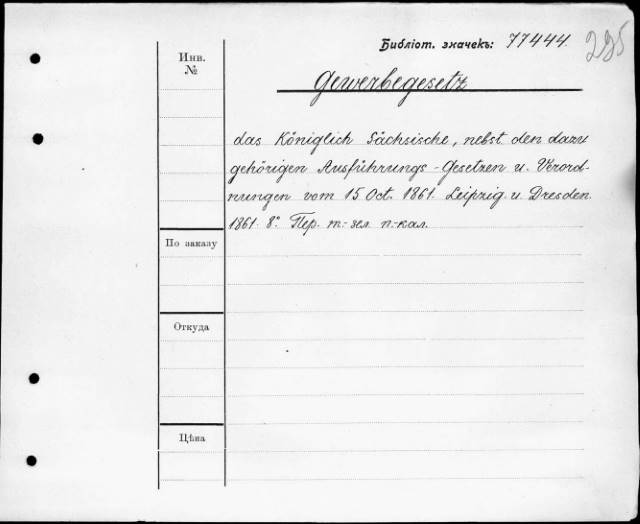 Библіот. значекъ: 77444.
225
Инв.
№
Gewerbegesetz
das Königlich Sächsische, nebst den dazu
gehörigen Ausführungs-Gesetzen u. Verord-
nungen vom 15 Oct. 1861. Leipzig. u. Dresden.
1861. 8°. Пер. т.-зел. п.-кал.
По заказу
Откуда
Цѣна